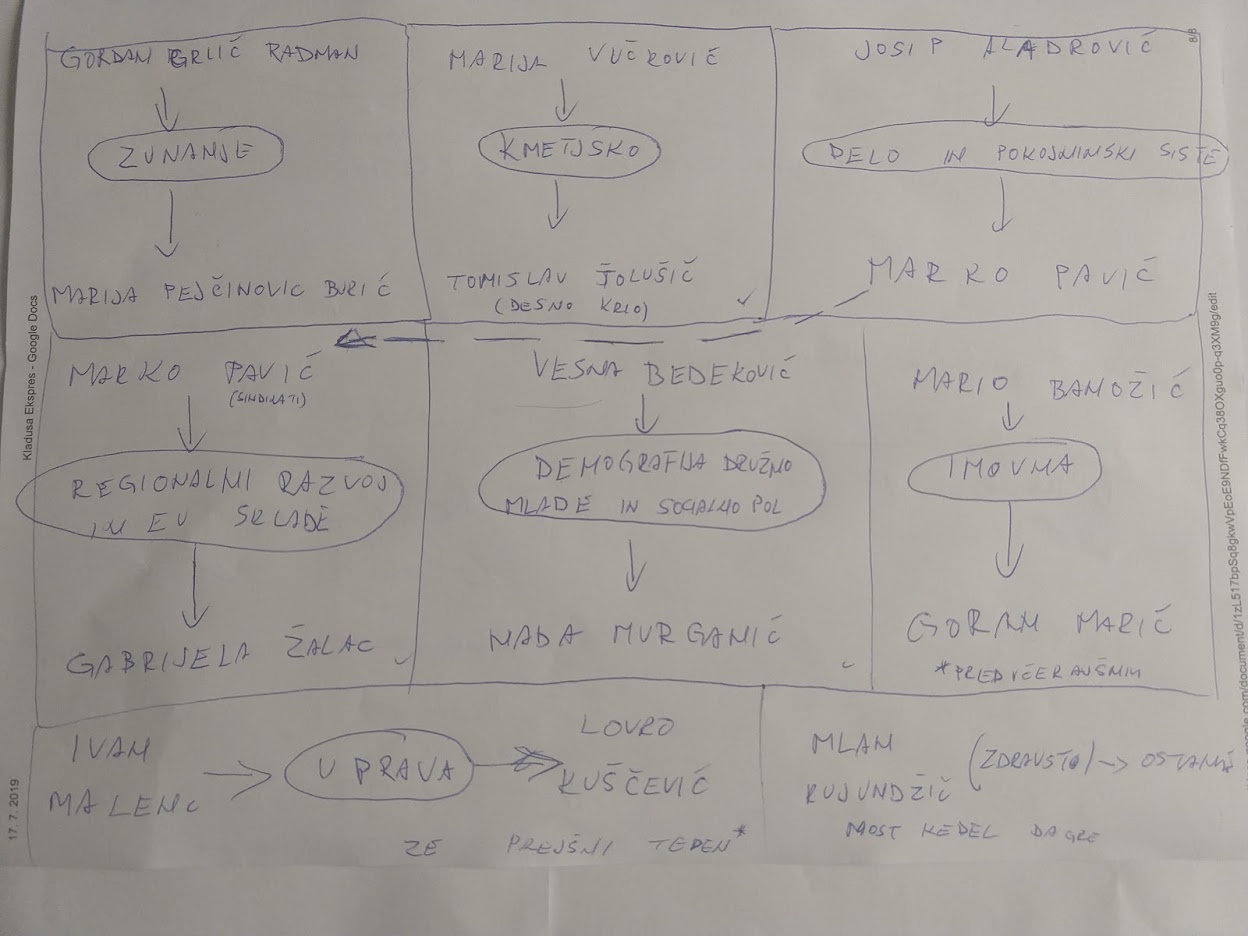 GORDAN GRLIĆ RADMAN
ZUNANJE
MARIJA PEJČINOVIC BURIĆ
MARIJA VUČKOVIČ
KMETIJSKO
TOMISLAV TOLUŠIČ
(DESNO KRLO)
JOSIP ALADROVIČ
DELO IN POKOJNINSKI SISTE
MARKO PAVIČ
MARKO PAVIČ
(SINDIKATI)
REGIONALNI RAZVOJ
IN EU SKLADE
GABRIJELA ŽALAC
VESNA BEDEKOVIČ
DEMOGRAFIJA DRUŽNO
MLADE IN SOCIALNO POL
NADA MURGANIČ
MARIO BANOŽIĆ
IMOVINA
GORAN MARIČ
*PREDVČERAJŠNIM
IVAN
MALENC
UPRAVA
LOVRO
KUŠČEVIČ
ZE PREJŠNI TEDEN*
MLAN
KUJUNDŽIČ
(ZDRAVSTO) → OSTANE
MOST HEDEL DA GRE
Kladusa Ekspres - Google Docs
17. 7. 2019
8/8